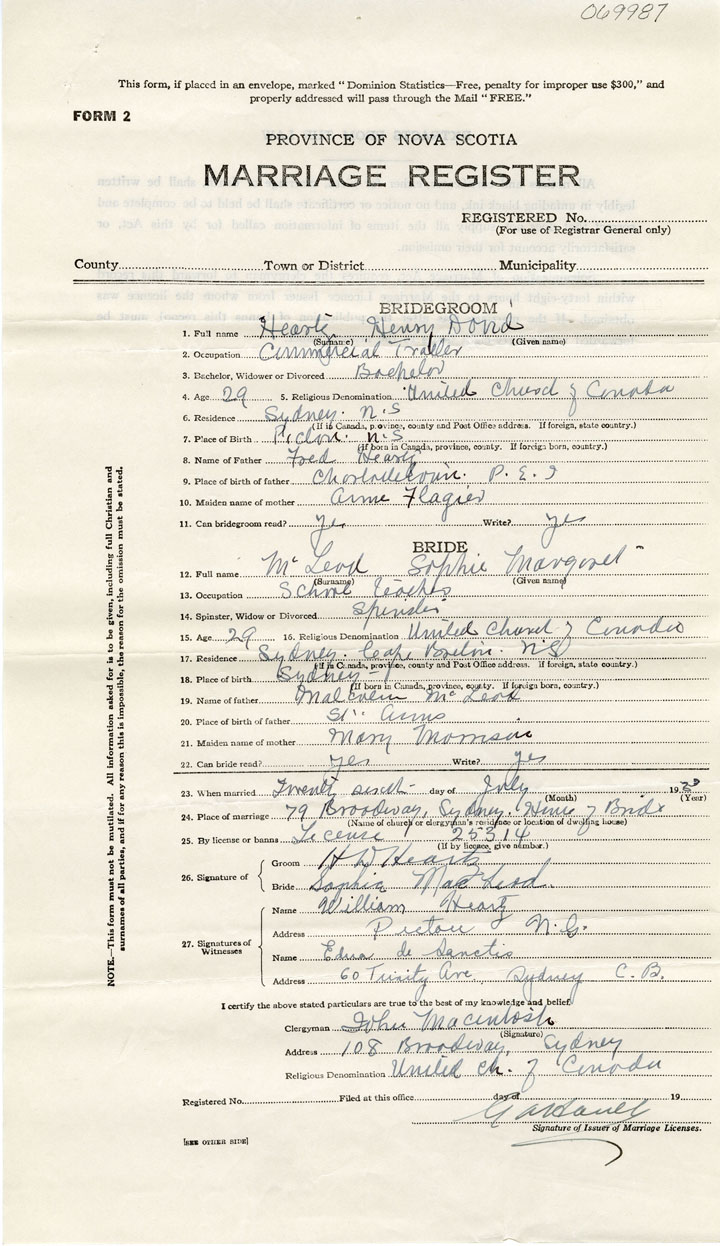 069987
This form, if placed in an envelope, marked "Dominion Statistics—Free, penalty for improper use $300," and
properly addressed will pass through the Mail "FREE."
FORM 2
PROVINCE OF NOVA SCOTIA
MARRIAGE REGISTER
REGISTERED No.
(For use of Registrar General only)
County Town or District Municipality
BRIDEGROOM
1. Full name Heartz Henry David
(Surname) (Given name)
2. Occupation Commercial
3. Bachelor, Widower or Divorced Bachelor
4. Age 29 5. Religious Denomination United Church of Canada
6. Residence Sydney. N.S
(If in Canada, province, county and Post Office address. If foreign, state country.)
7. Place of Birth Pictou. N.S
(If born in Canada, province, county. If foreign born, country.)
8. Name of Father Fred Heartz
9. Place of birth of father Charlottetown. P.E.I
10. Maiden name of mother
11. Can bridegroom read? yes Write? yes
BRIDE
12. Full name McLeod Sophie Margaret
(Surname) (Given name)
13. Occupation School Teacher
14. Spinster, Widow or Divorced Spinster
15. Age 29 16. Religious Denomination United Church of Canada
17. Residence Sydney. Cape Breton. N.S
(If in Canada, province, county and Post Office address. If foreign, state country.)
18. Place of birth Sydney
(If born in Canada, province, county. If foreign born, country.)
19. Name of father Malcolm McLeod
20. Place of birth of father St. Anns
21. Maiden name of mother Mary Morrison
22. Can bride read? yes Write? yes
23. When married Twenty day of July 19
(Month) (Year)
24. Place of marriage 79 Broadway, Sydney. Home of Bride
(Name of church or clergyman's residence or location of dwelling house)
25. By license or banns License 25314
(If by licence, give number.)
26. Signature of
Groom H D Heartz
Bride Sophie MacLeod.
27. Signatures of Witnesses
Name William Heartz
Address Pictou N.S.
Name Edna de Sanctis
Address 60 Trinity Ave., Sydney C.B.
I certify the above stated particulars are true to the best of my knowledge and belief.
Clergyman John Macintosh
(Signature)
Address 108 Broadway, Sydney
Religious Denomination United Ch. of Canada
Registered No. Filed at this office day of 19
Signature of Issuer of Marriage Licenses.
[SEE OTHER SIDE]
NOTE.—This form must not be mutilated. All information asked for is to be given, including full Christian and
surnames of all parties, and if for any reason this is impossible, the reason for the omission must be stated.